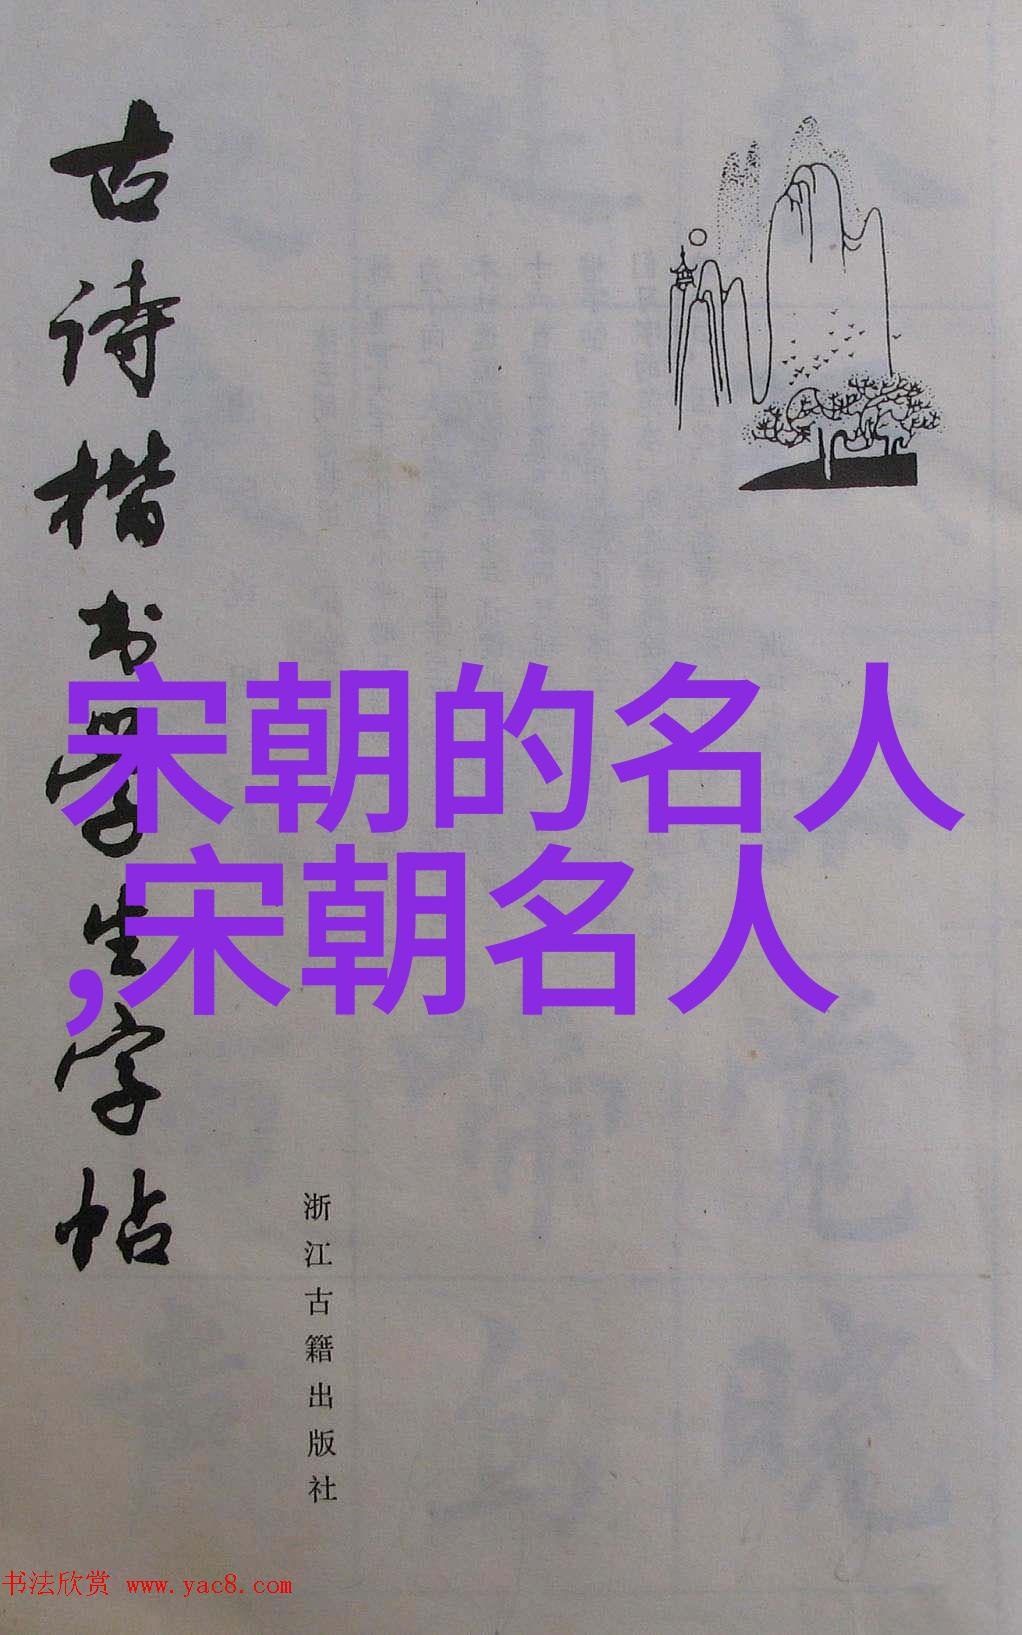 古诗楷书学生字帖
宋朝的名人
,宋朝名人
浙江古籍出版社
书法欣赏 www.yac8.com